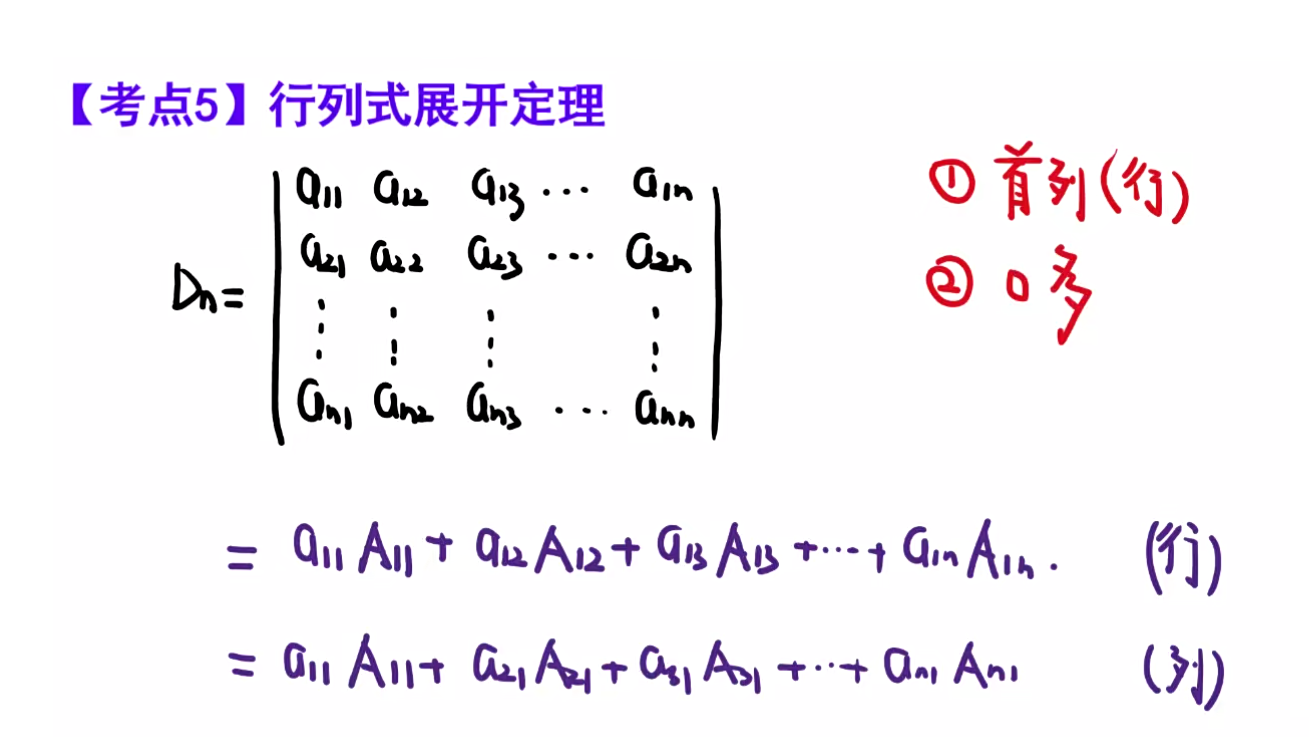 【考点5】行列式展开定理
① 首列(行)
② 0多
a11 a12 a13 ··· a1n
a21 a22 a23 ··· a2n
Dn=
⋮ ⋮ ⋮ ⋮
an1 an2 an3 ··· ann
= a11 A11 + a12 A12 + a13 A13 +···+ a1n A1n. (行)
= a11 A11 + a21 A21 + a31 A31 +···+ an1 An1 (列)